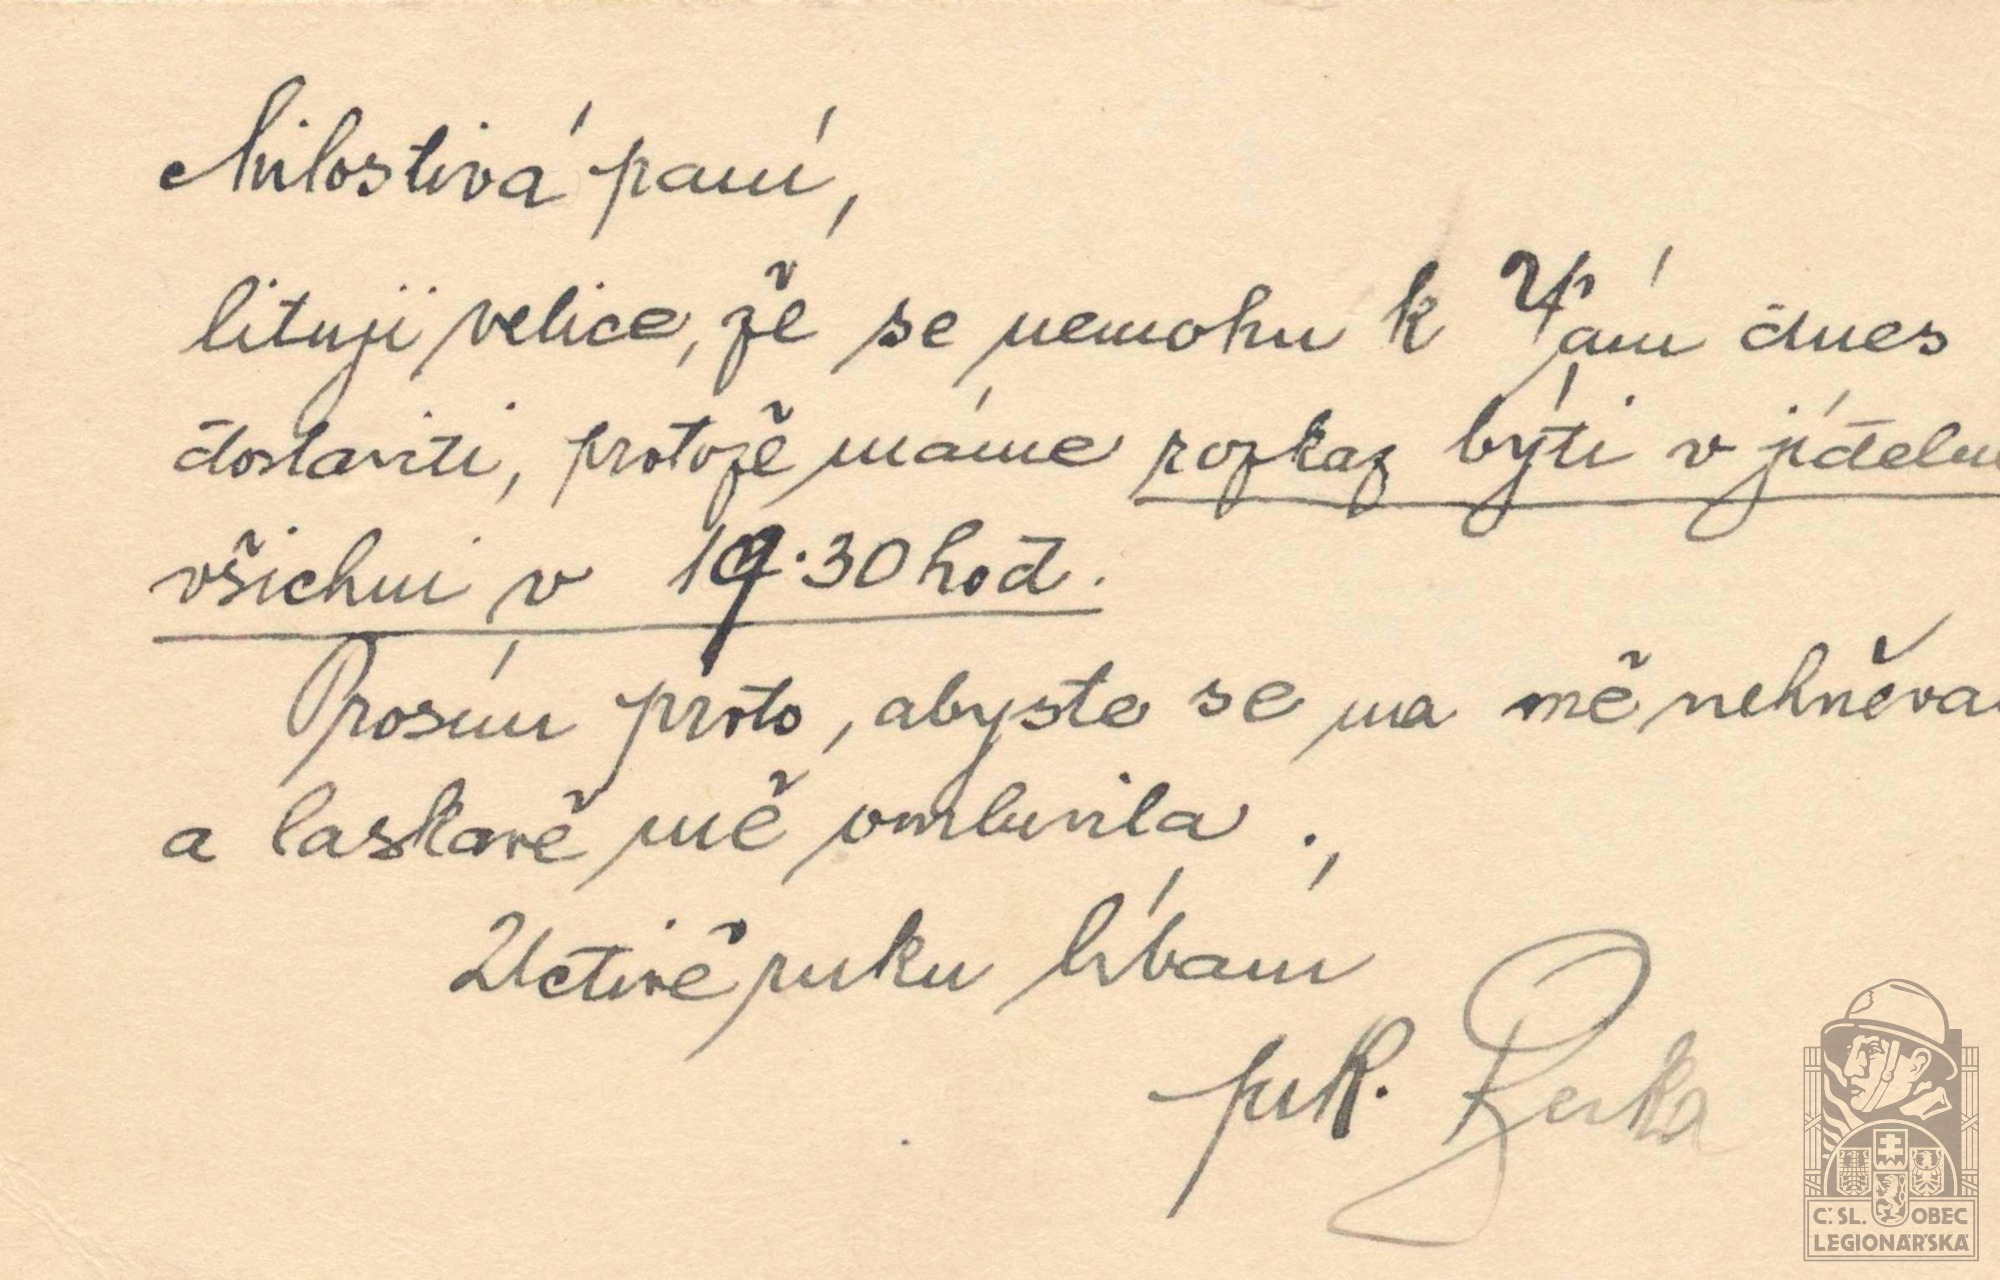 Milostivá paní,
lituji velice, že se nemohu k Vám dnes
dostaviti, protože máme rozkaz býti v jídelně
všichni v 19.30 hod.
Prosím proto, abyste se na mě nehněva
a laskavě mě omluvila.,
Uctivě ruku líbám
plk.
Č.SL. OBEC
LEGIONÁŘSKÁ